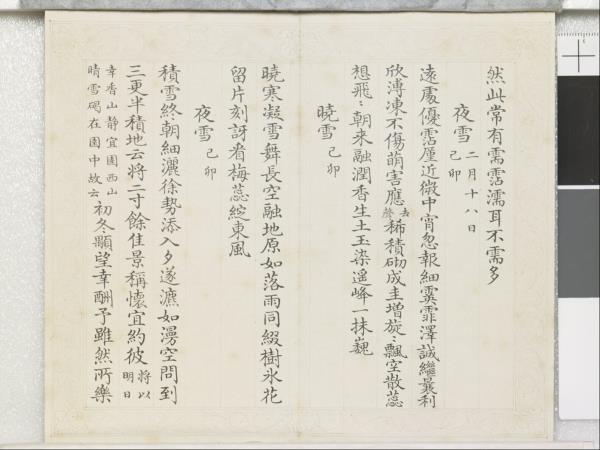 然此常有需霑濡耳不需多
夜雪 二月十八日
己卯
遠處優霑廑近微中宵忽報細霙霏澤誠繼曩利
欣溥凍不傷萌害應去聲稀積砌成圭增旋〻飄空散蕊
想飛〻朝來融潤香生土玉染遙峰一抹巍
曉雪 己卯
曉寒凝雪舞長空融地原如落雨同綴樹氷花
留片刻訝看梅蕊綻東風
夜雪 己卯
積雪終朝細灑徐勢添入夕遂漉如漫空問到
三更半積地云將二寸餘佳景稱懷宜約彼將以明日
幸香山靜宜園西山
晴雪碣在園中故云初冬顒望幸酬予雖然所樂